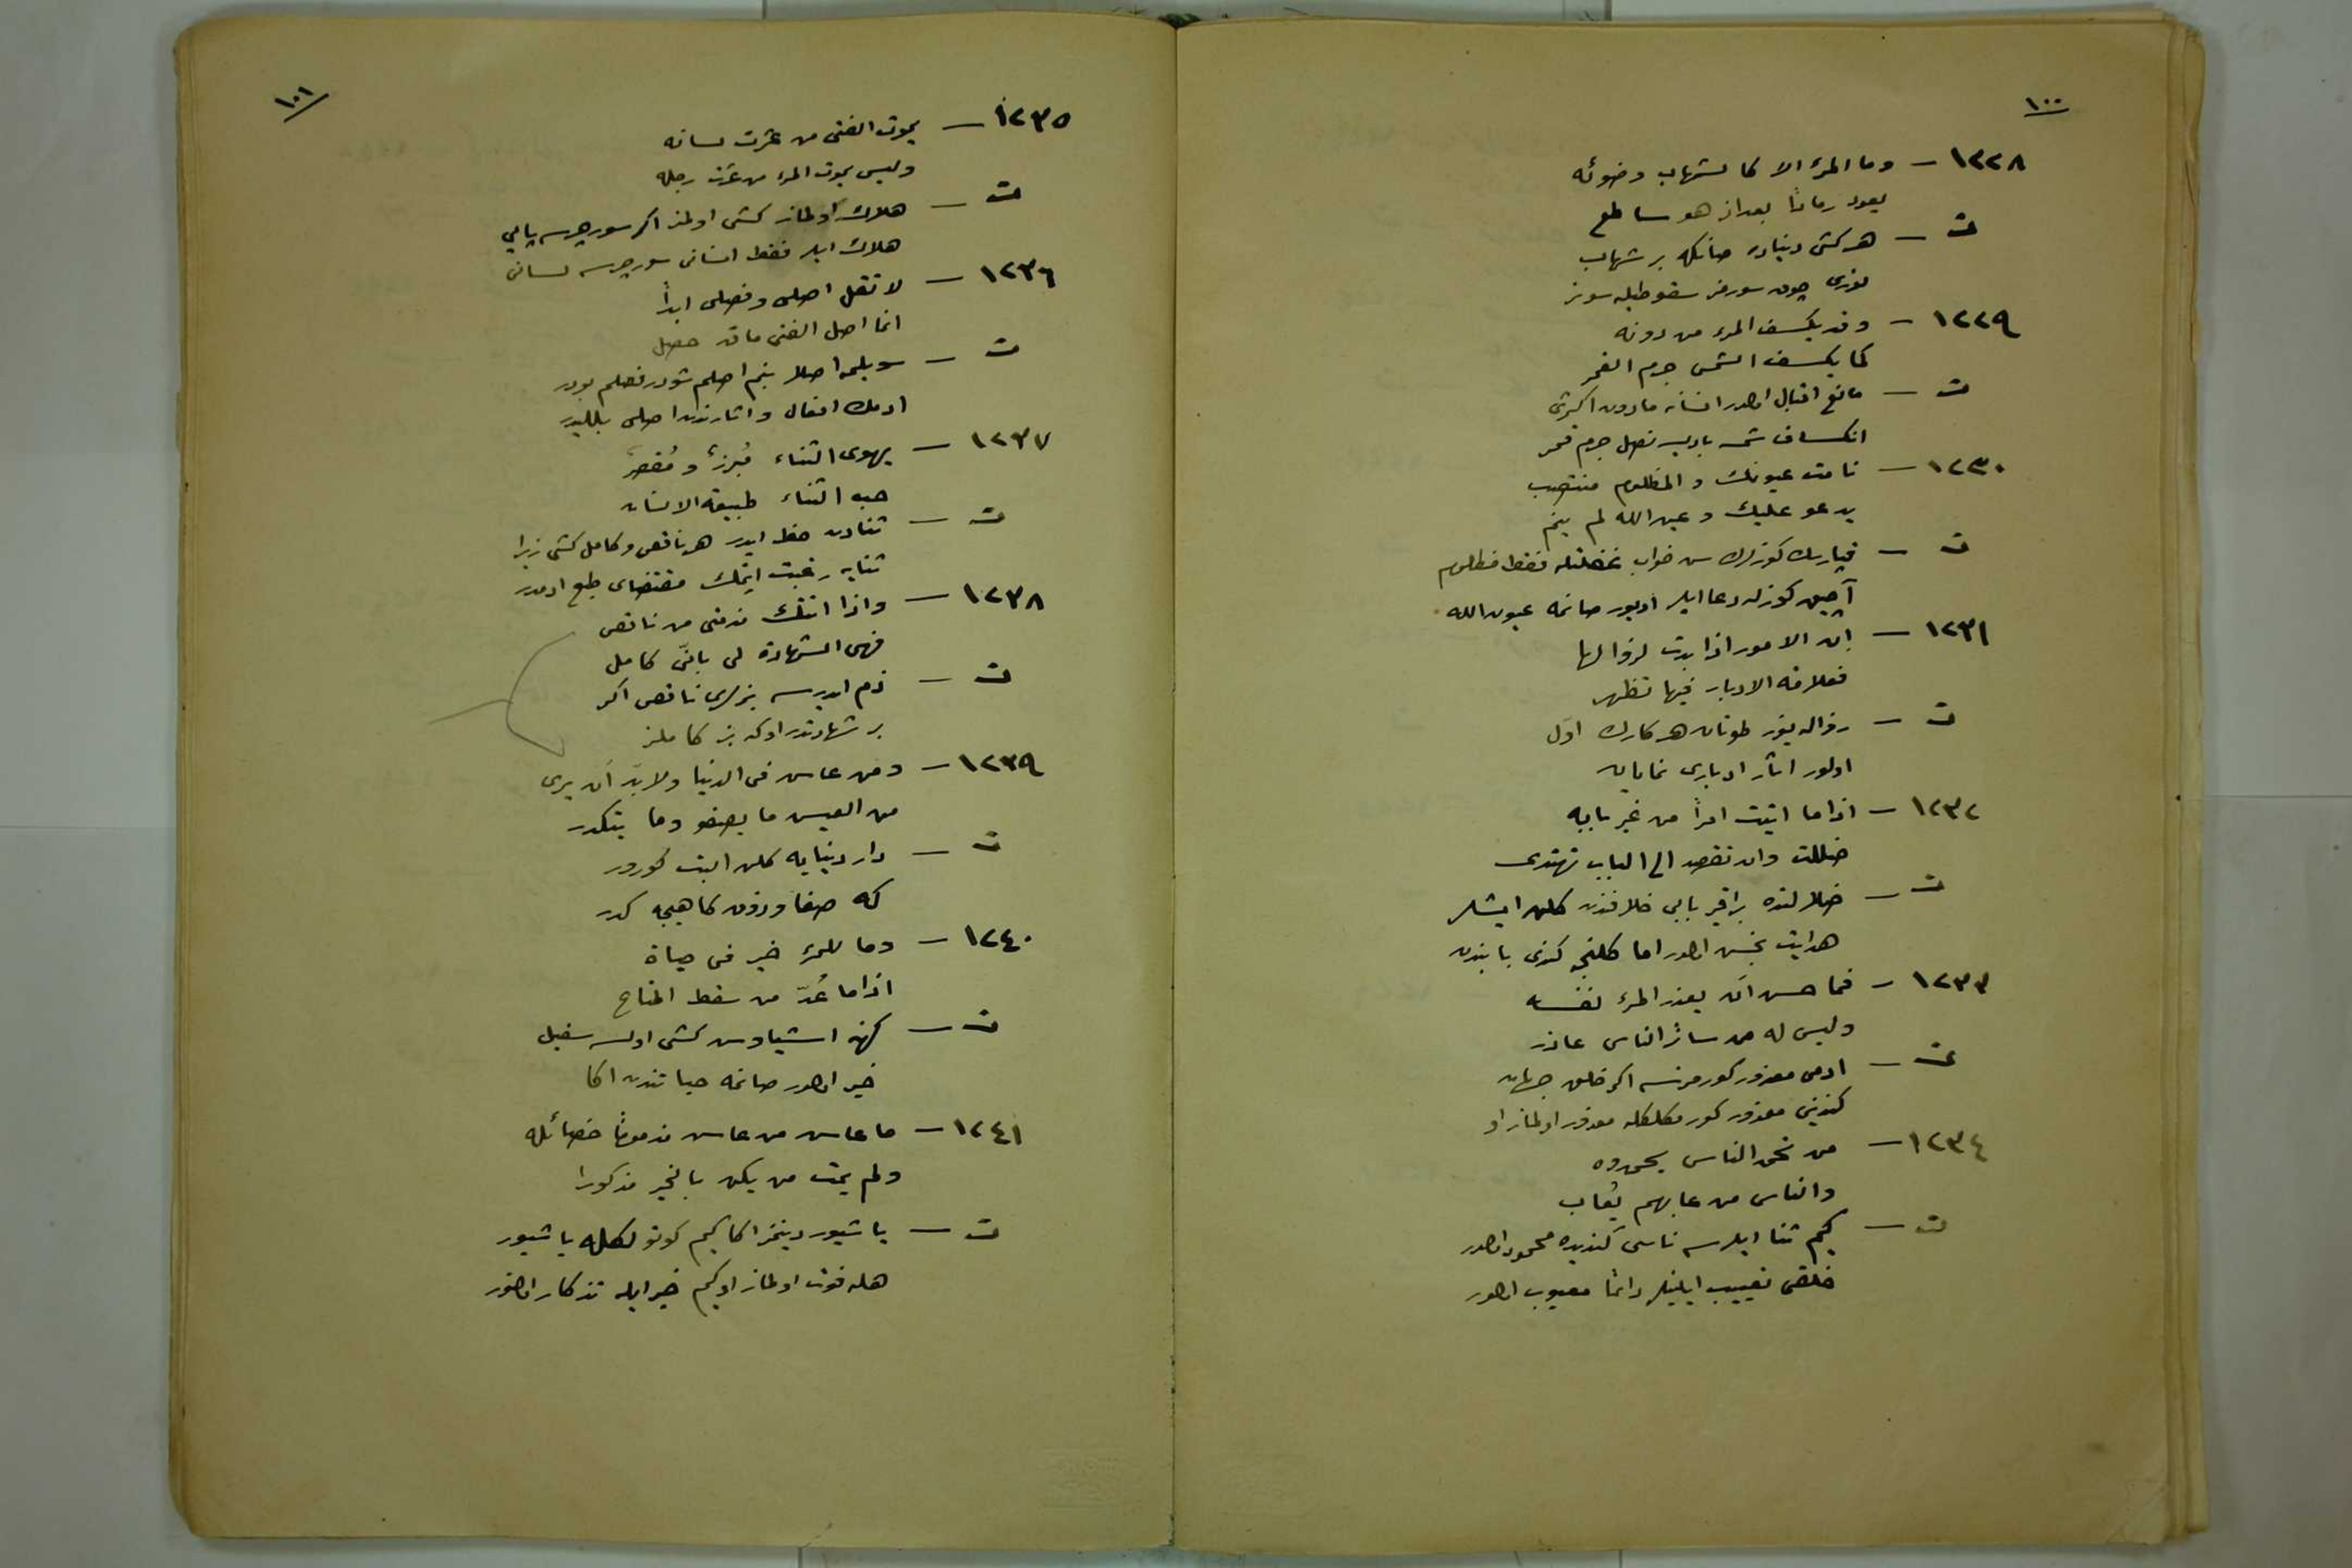 ١٠٠
١٢٢٨ – وما المرء الا كالشهاب وضوئه
يعود رمادًا بعد اذ هو ساطع
ت – هر كشى دنياده صانكه بر شهاب
نورى چوق سورمز سقوطيله سونر
١٢٢٩ – وقد يكسف المرء من دونه
كما يكسف الشمس جرم القمر
ت – مانع اقبال اولور انسانه مادون اكثرى
انكساف شمسه باديدر نصل جرم قمر
١٢٣٠ – نامت عيونك والمظلوم منتصب
يدعو عليك وعين الله لم ينم
ت – قپارسك كوزلرك سن خواب غفلتله فقط مظلوم
آچيق كوزله دعا ايلر اويور صانمه عيون الله
١٢٣١ – إن الامور اذا بدت لزوالها
فعلامة الادبار فيها تظهر
ت – زواله يوز طوتان هر كارك اوّل
اولور اثار ادبارى نمايان
١٢٣٢ – اذا ما اتيت امرًا من غير بابه
ضللت وان تقصد الى الباب تهتدى
ت – ضلالتده براقير بابى خلافندن كلن ايشلر
هدايت بخش اولور اما كلنجه كندى بابندن
١٢٣٣ – فما حسن أن يعذر المرء نفسه
وليس له من سائر الناس عاذر
ت – ادمى معذور كورمزسه اكر خلق جهان
كندينى معذور كورمكلكله معذور اولماز او
١٢٣٤ – من يحمد الناس يحمدوه
والناس من عابهم يُعاب
ت – كيم ثنا ايلرسه ناسى كنديده محمود اولور
خلقى تعييب ايلينلر دائما معيوب اولور
١٠١
١٢٣٥ – يموت الفتى من عثرت لسانه
وليس يموت المرء من عثرت رجله
ت – هلاك اولماز كشى اولمز اكر سورچرسه پايى
هلاك ايلر فقط انسانى سورچرسه لسانى
١٢٣٦ – لا تقل اصلى وفصلى ابدًا
انما اصل الفتى ما قد حصل
ت – سويلمه اصلا بنم اصلم شودر فصلم بودر
ادمك افعال و اثارندن اصلى بللیدر
١٢٣٧ – يهوى الثناء مُبرزٌ و مُقصرٌ
حب الثناء طبيعة الانسان
ت – ثنادن حظ ايدر هر ناقص و كامل كشى زيرا
ثنايه رغبت ايتمك مقتضاى طبع ادمدر
١٢٣٨ – واذا اتتك مذمتى من ناقص
فهى الشهادة لى بانّى كامل
ت – ذم ايدرسه بزلرى ناقص اكر
بر شهادتدر اوكه بز كاملز
١٢٣٩ – ومن عاش فى الدنيا ولا بدّ أن يرى
من العيش ما يصفو وما يتكدر
ت – دار دنيايه كلن البت كورور
كه صفا و ذوق كاهيجه كدر
١٢٤٠ – وما للمرء خير فى حياة
اذا ما عُدّ من سقط المتاع
ت – كهنه اشيادن كشى اولسه سفيل
خير اولور صانمه حياتندن اكا
١٢٤١ – ما عاش من عاش مذمومًا خصائله
ولم يمت من يكن بالخير مذكورا
ت – ياشيور دينمز اكا كيم كوتولكله ياشيور
هله فوت اولماز او كيم خير ايله تذكار اولنور